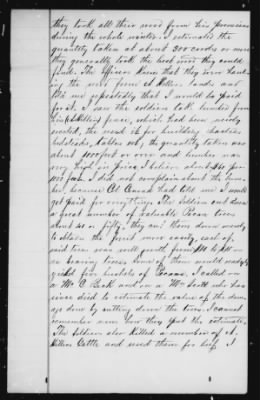 they took all their wood from his premises
during the whole winter. I estimate the
quantity taken at about 300 cords or more
they generally took the best wood they could
find. The officers knew that they were haul-
ing the wood from A. Millers lands and
told me repeatedly that I would be paid
for it. I saw the soldiers take lumber from
his (Millers) fence, which had been newly
erected, they used it for building shanties
bedsteads, tables &c, the quantity taken was
about 1000 feet or over and lumber was
very high in price
100 feet. I did not complain about the lum-
ber, because Col. had told me I would
get paid for everything. The soldiers cut down
a great number of valuable Pecan trees
about 40 or fifty, they cut them down merely
to obtain the fruit more easily, each of
said trees was well worth from to $
as bearing trees. Some of them would readily
yield five bushels of Pecans. I called on
a Mr. C. Beck and on a Mr. Scott who has
since died to estimate the value of the dam-
age done by cutting down the trees. I cannot
remember now how they put the estimate.
The soldiers also killed a number of A.
Millers Cattle and used them for beef. I